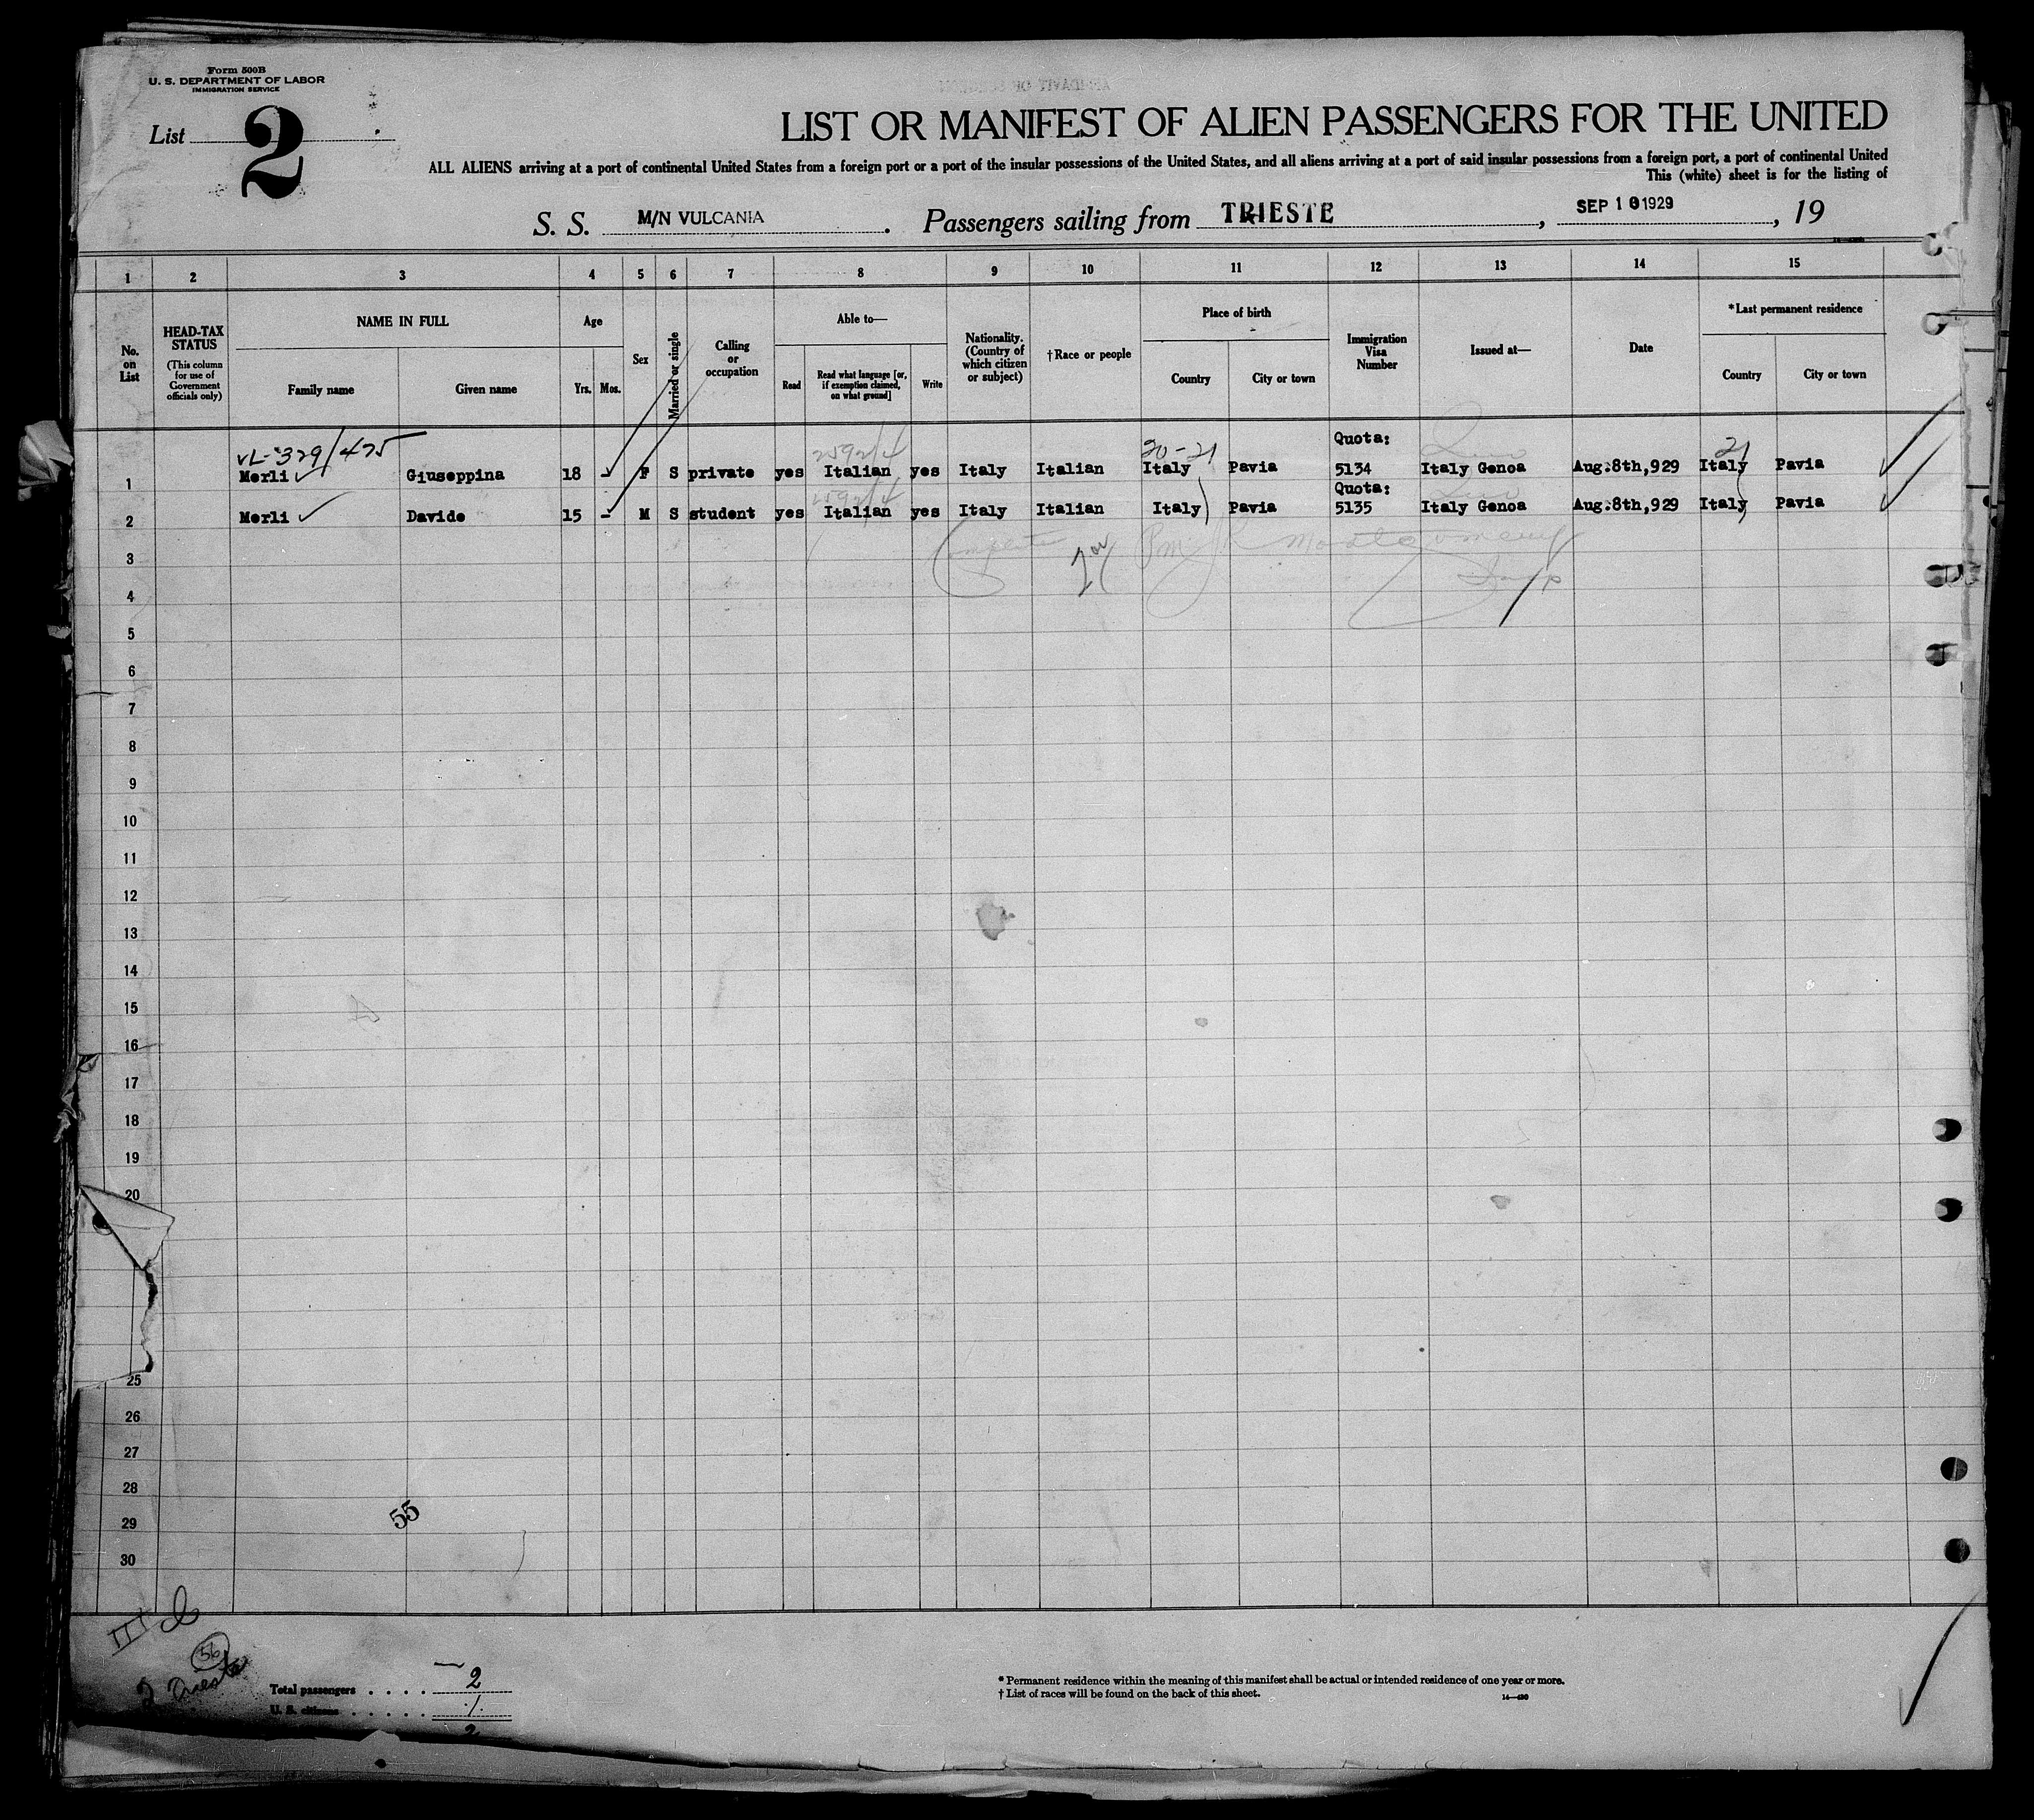 Form 500B
U. S. DEPARTMENT OF LABOR
IMMIGRATION SERVICE
List 2
LIST OR MANIFEST OF ALIEN PASSENGERS FOR THE UNITED
ALL ALIENS arriving at a port of continental United States from a foreign port or a port of the insular possessions of the United States, and all aliens arriving at a port of said insular possessions from a foreign port, a port of continental United
This (white) sheet is for the listing of
S. S. M/N VULCANIA. Passengers sailing from TRIESTE, SEP 10 1929, 19
1 2 3 4 5 6 7 8 9 10 11 12 13 14 15
No. on List
HEAD-TAX STATUS
(This column for use of Government officials only)
NAME IN FULL
Family name
Given name
Age
Yrs.
Mos.
Sex
Married or single
Calling or occupation
Able to—
Read
Read what language [or, if exemption claimed, on what ground]
Write
Nationality. (Country of which citizen or subject)
†Race or people
Place of birth
Country
City or town
Immigration Visa Number
Issued at—
Date
*Last permanent residence
Country
City or town
VL-329/475 20-21 Quota: 21
1 Merli Giuseppina 18 - F S private yes Italian yes Italy Italian Italy Pavia 5134 Italy Genoa Aug.8th,929 Italy Pavia
Quota:
2 Merli Davide 15 - M S student yes Italian yes Italy Italian Italy Pavia 5135 Italy Genoa Aug.8th,929 Italy Pavia
3
4
5
6
7
8
9
10
11
12
13
14
15
16
17
18
19
20
25
26
27
28
29
30
55
III
56
2 Trieste
Total passengers . . . . 2
U. S. citizens . . . . . 1.
2
* Permanent residence within the meaning of this manifest shall be actual or intended residence of one year or more.
† List of races will be found on the back of this sheet.
14—430